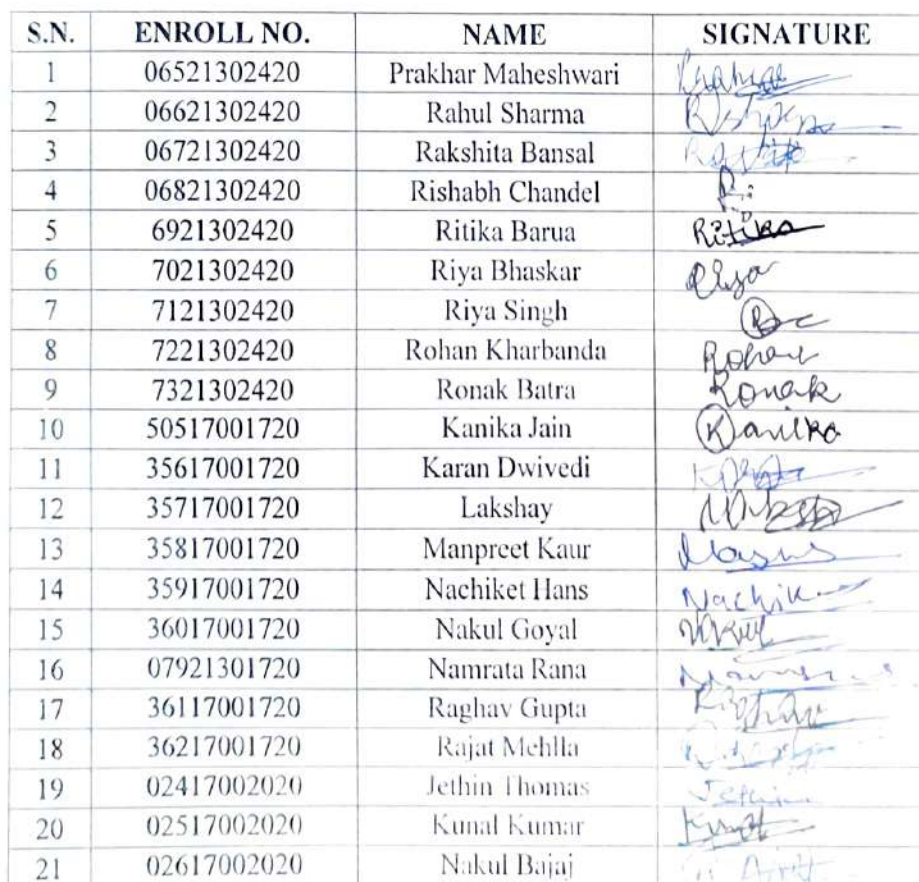 S.N. ENROLL NO. NAME SIGNATURE
1 06521302420 Prakhar Maheshwari
2 06621302420 Rahul Sharma
3 06721302420 Rakshita Bansal
4 06821302420 Rishabh Chandel
5 6921302420 Ritika Barua Ritika
6 7021302420 Riya Bhaskar Riya
7 7121302420 Riya Singh
8 7221302420 Rohan Kharbanda Rohan
9 7321302420 Ronak Batra Ronak
10 50517001720 Kanika Jain Kanika
11 35617001720 Karan Dwivedi
12 35717001720 Lakshay
13 35817001720 Manpreet Kaur
14 35917001720 Nachiket Hans
15 36017001720 Nakul Goyal
16 07921301720 Namrata Rana
17 36117001720 Raghav Gupta
18 36217001720 Rajat Mehlla
19 02417002020 Jethin Thomas
20 02517002020 Kunal Kumar
21 02617002020 Nakul Bajaj